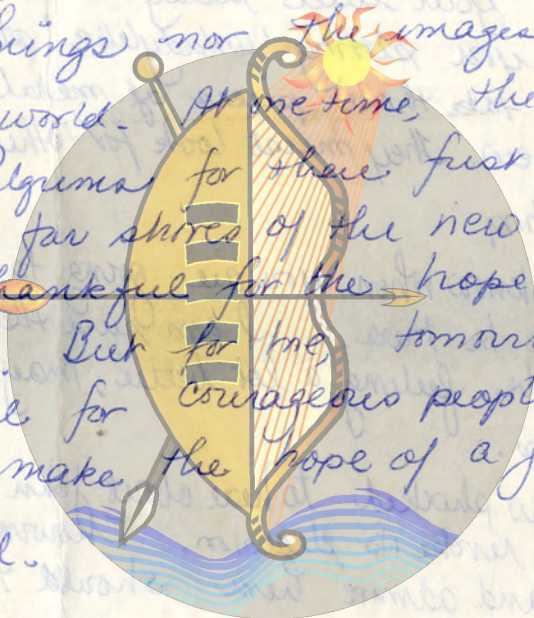 things nor the images
world. At one time, the
Pilgrims for their first
far shores of the new
thankful for the hope
But for me, tomorr
for courageous peopl
make the hope of a